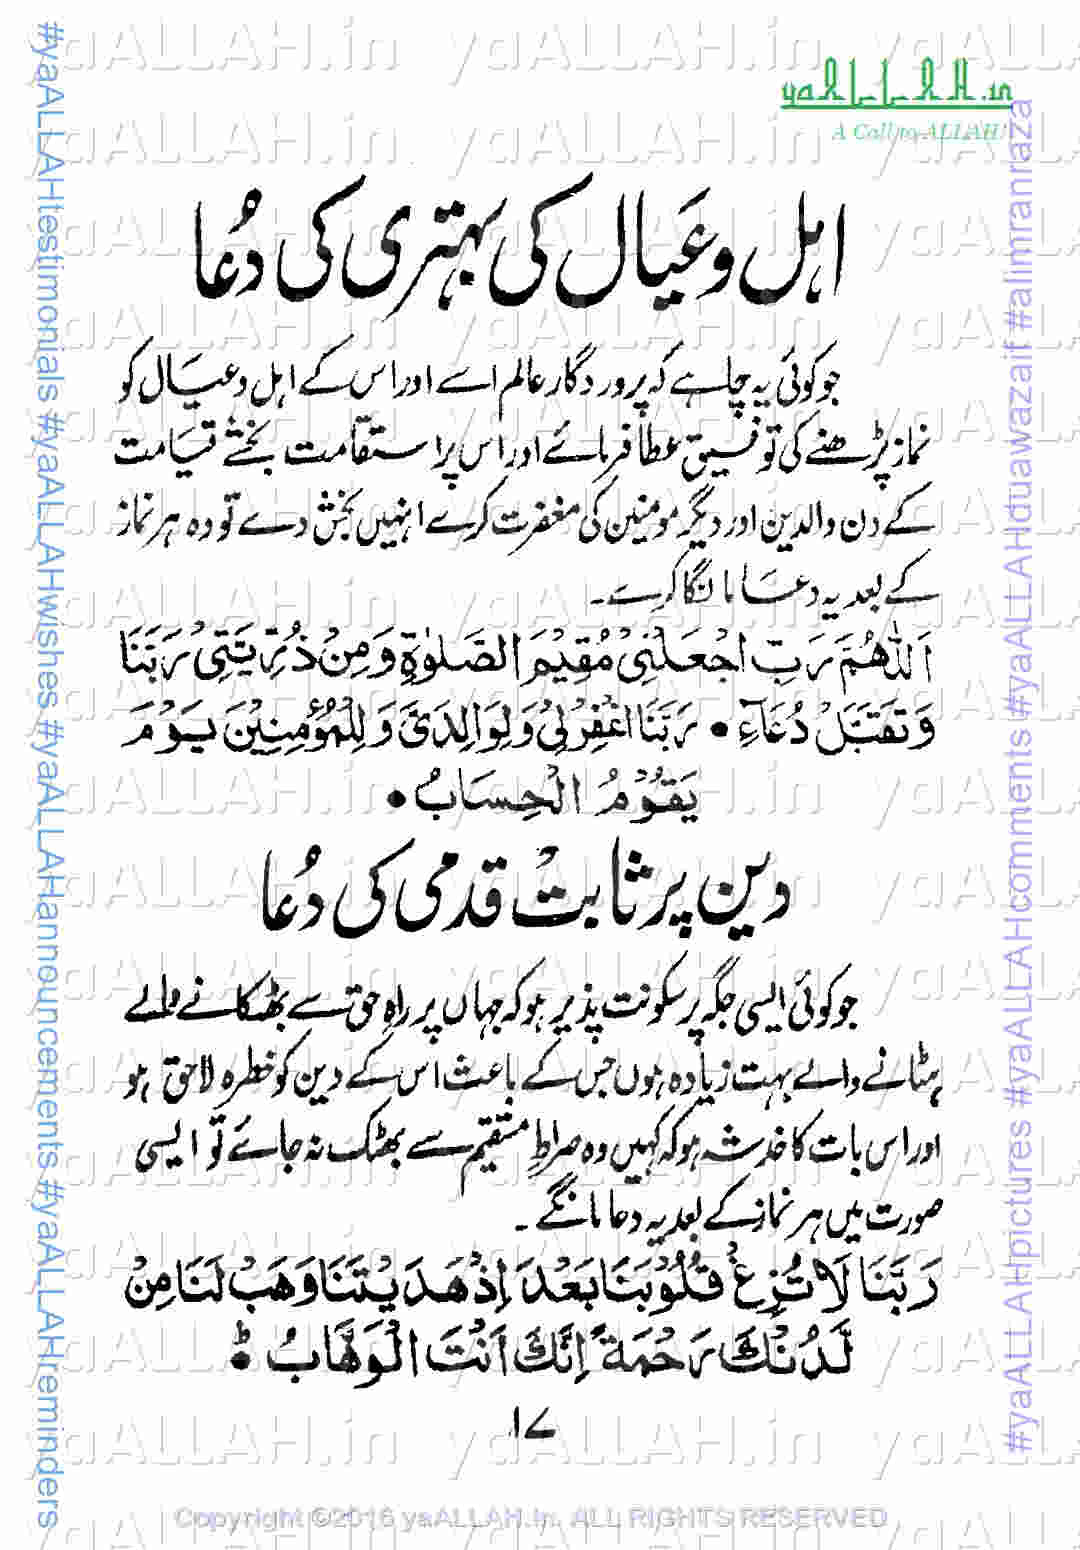 yaALLAH.in
A Call to ALLAH!
اہل و عَیال کی بہتری کی دُعا
جو کوئی یہ چاہے کہ پروردگار عالم اسے اور اس کے اہل و عیال کو
نماز پڑھنے کی توفیق عطا فرمائے اور اس پر استقامت بخشے قیامت
کے دن والدین اور دیگر مومنین کی مغفرت کرے انہیں بخش دے تو وہ ہر نماز
کے بعد یہ دعا مانگا کرے۔
اَللّٰهُمَّ رَبِّ اجْعَلْنِیْ مُقِیْمَ الصَّلٰوةِ وَمِنْ ذُرِّیَّتِیْ رَبَّنَا
وَتَقَبَّلْ دُعَآءِ • رَبَّنَا اغْفِرْلِیْ وَلِوَالِدَیَّ وَلِلْمُؤْمِنِیْنَ یَوْمَ
یَقُوْمُ الْحِسَابُ •
دین پر ثابت قدمی کی دُعا
جو کوئی ایسی جگہ پر سکونت پذیر ہو کہ جہاں پر راہِ حق سے بھٹکانے والے
ہٹانے والے بہت زیادہ ہوں جس کے باعث اس کے دین کو خطرہ لاحق ہو
اور اس بات کا خدشہ ہو کہ کہیں وہ صراطِ مستقیم سے بھٹک نہ جائے تو ایسی
صورت میں ہر نماز کے بعد یہ دعا مانگے۔
رَبَّنَا لَا تُزِغْ قُلُوْبَنَا بَعْدَ اِذْ هَدَیْتَنَا وَهَبْ لَنَا مِنْ
لَّدُنْكَ رَحْمَةً اِنَّكَ اَنْتَ الْوَهَّابُ •
۱۷
Copyright ©2016 yaALLAH.in. ALL RIGHTS RESERVED
#yaALLAHtestimonials #yaALLAHwishes #yaALLAHannouncements #yaALLAHreminders
#yaALLAHpictures #yaALLAHcomments #yaALLAHduawazaif #alimranraza